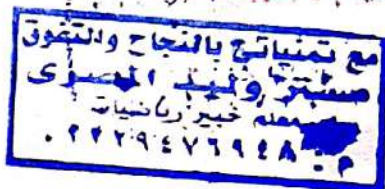 مع تمنياتى بالنجاح والتفوق
مستر وليد المصرى
معلم خبير رياضيات
م: ٠٢٢٢٩٤٧٦٩٤٨